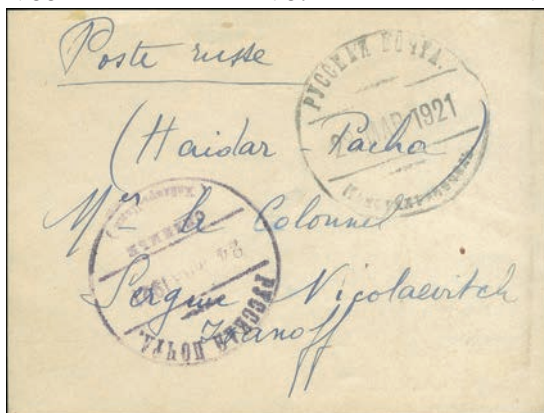 Poste russe
РУССКАЯ ПОЧТА.
МАР 1921
(Haidar - Pacha)
Mr le Colonnel
Sergue Nicolaevitch
Ivanoff
24
РУССКАЯ ПОЧТА.